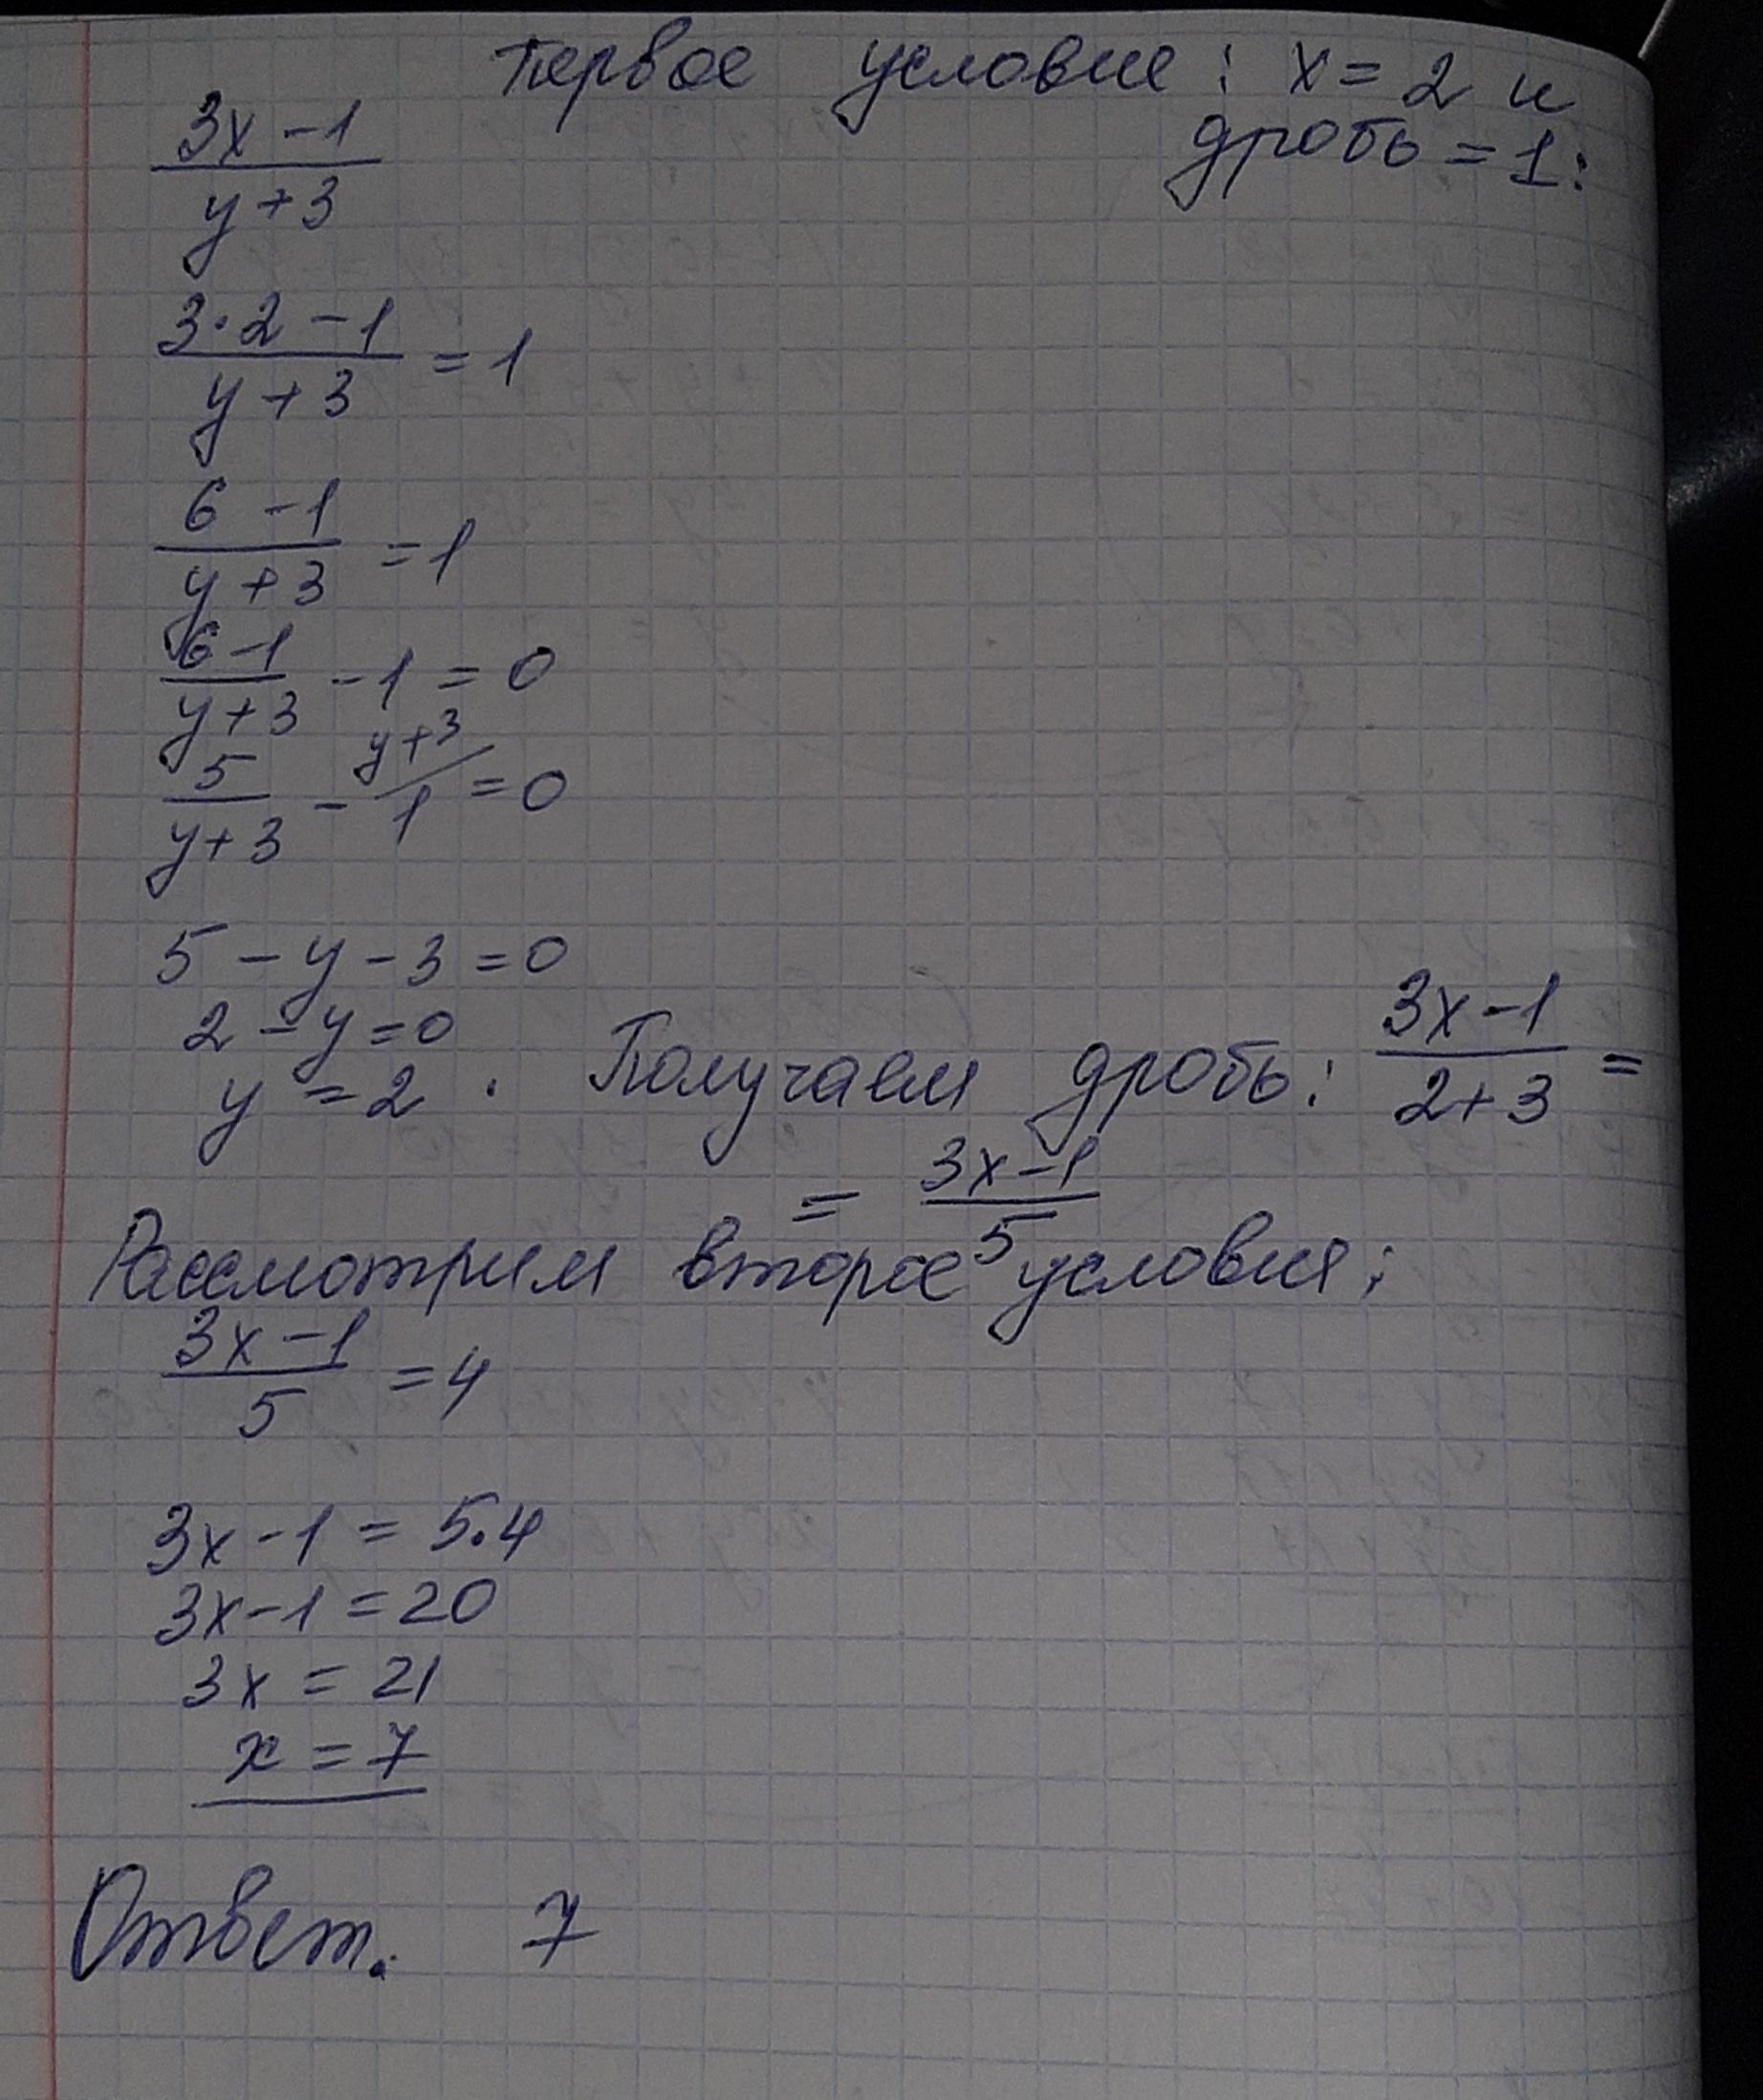 Первое условие: x = 2 и
дробь = 1:
3x - 1
y + 3
3·2 - 1
y + 3
= 1
6 - 1
y + 3
= 1
6 - 1
y + 3
- 1 = 0
5
y + 3
- 1 = 0
y + 3
5 - y - 3 = 0
2 - y = 0
y = 2. Получаем дробь:
3x - 1
2 + 3
=
=
3x - 1
5
Рассмотрим второе условие:
3x - 1
5
= 4
3x - 1 = 5·4
3x - 1 = 20
3x = 21
x = 7
Ответ: 7